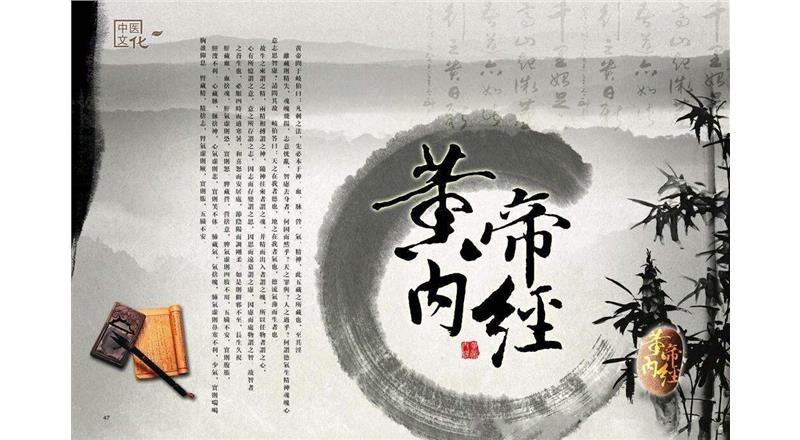 中医
文化
黄帝問于岐伯曰：凡刺之法，先必本于神
血、脉、營、氣、精神，此五藏之所藏也，至其淫
離藏則精失，魂魄飛揚，志意恍亂，智慮去身者，何因而然乎？天之罪與？人之過乎？何謂德氣生精神魂魄心
意志思智慮？請問其故
岐伯答曰：天之在我者德也，地之在我者氣也，德流氣薄而生者也
故生之來謂之精，兩精相搏謂之神，隨神往來者謂之魂，并精而出入者謂之魄，所以任物者謂之心，
心有所憶謂之意，意之所存謂之志，因志而存變謂之思，因思而遠慕謂之慮，因慮而處物謂之智
故智者
之養生也，必順四時而適寒暑，和喜怒而安居處，節陰陽而調剛柔
如是則僻邪不至，長生久視
肝藏血，血捨魂，肝氣虛則恐，實則怒
脾藏營，營捨意，脾氣虛則四肢不用，五臟不安，實則腹脹，
經溲不利
心藏脉，脉捨神，心氣虛則悲，實則笑不休
肺藏氣，氣捨魄，肺氣虛則鼻塞不利，少氣，實則喘喝
胸盈仰息
腎藏精，精捨志，腎氣虛則厥，實則脹，五臟不安
黄帝
内經
黄帝
内經
47